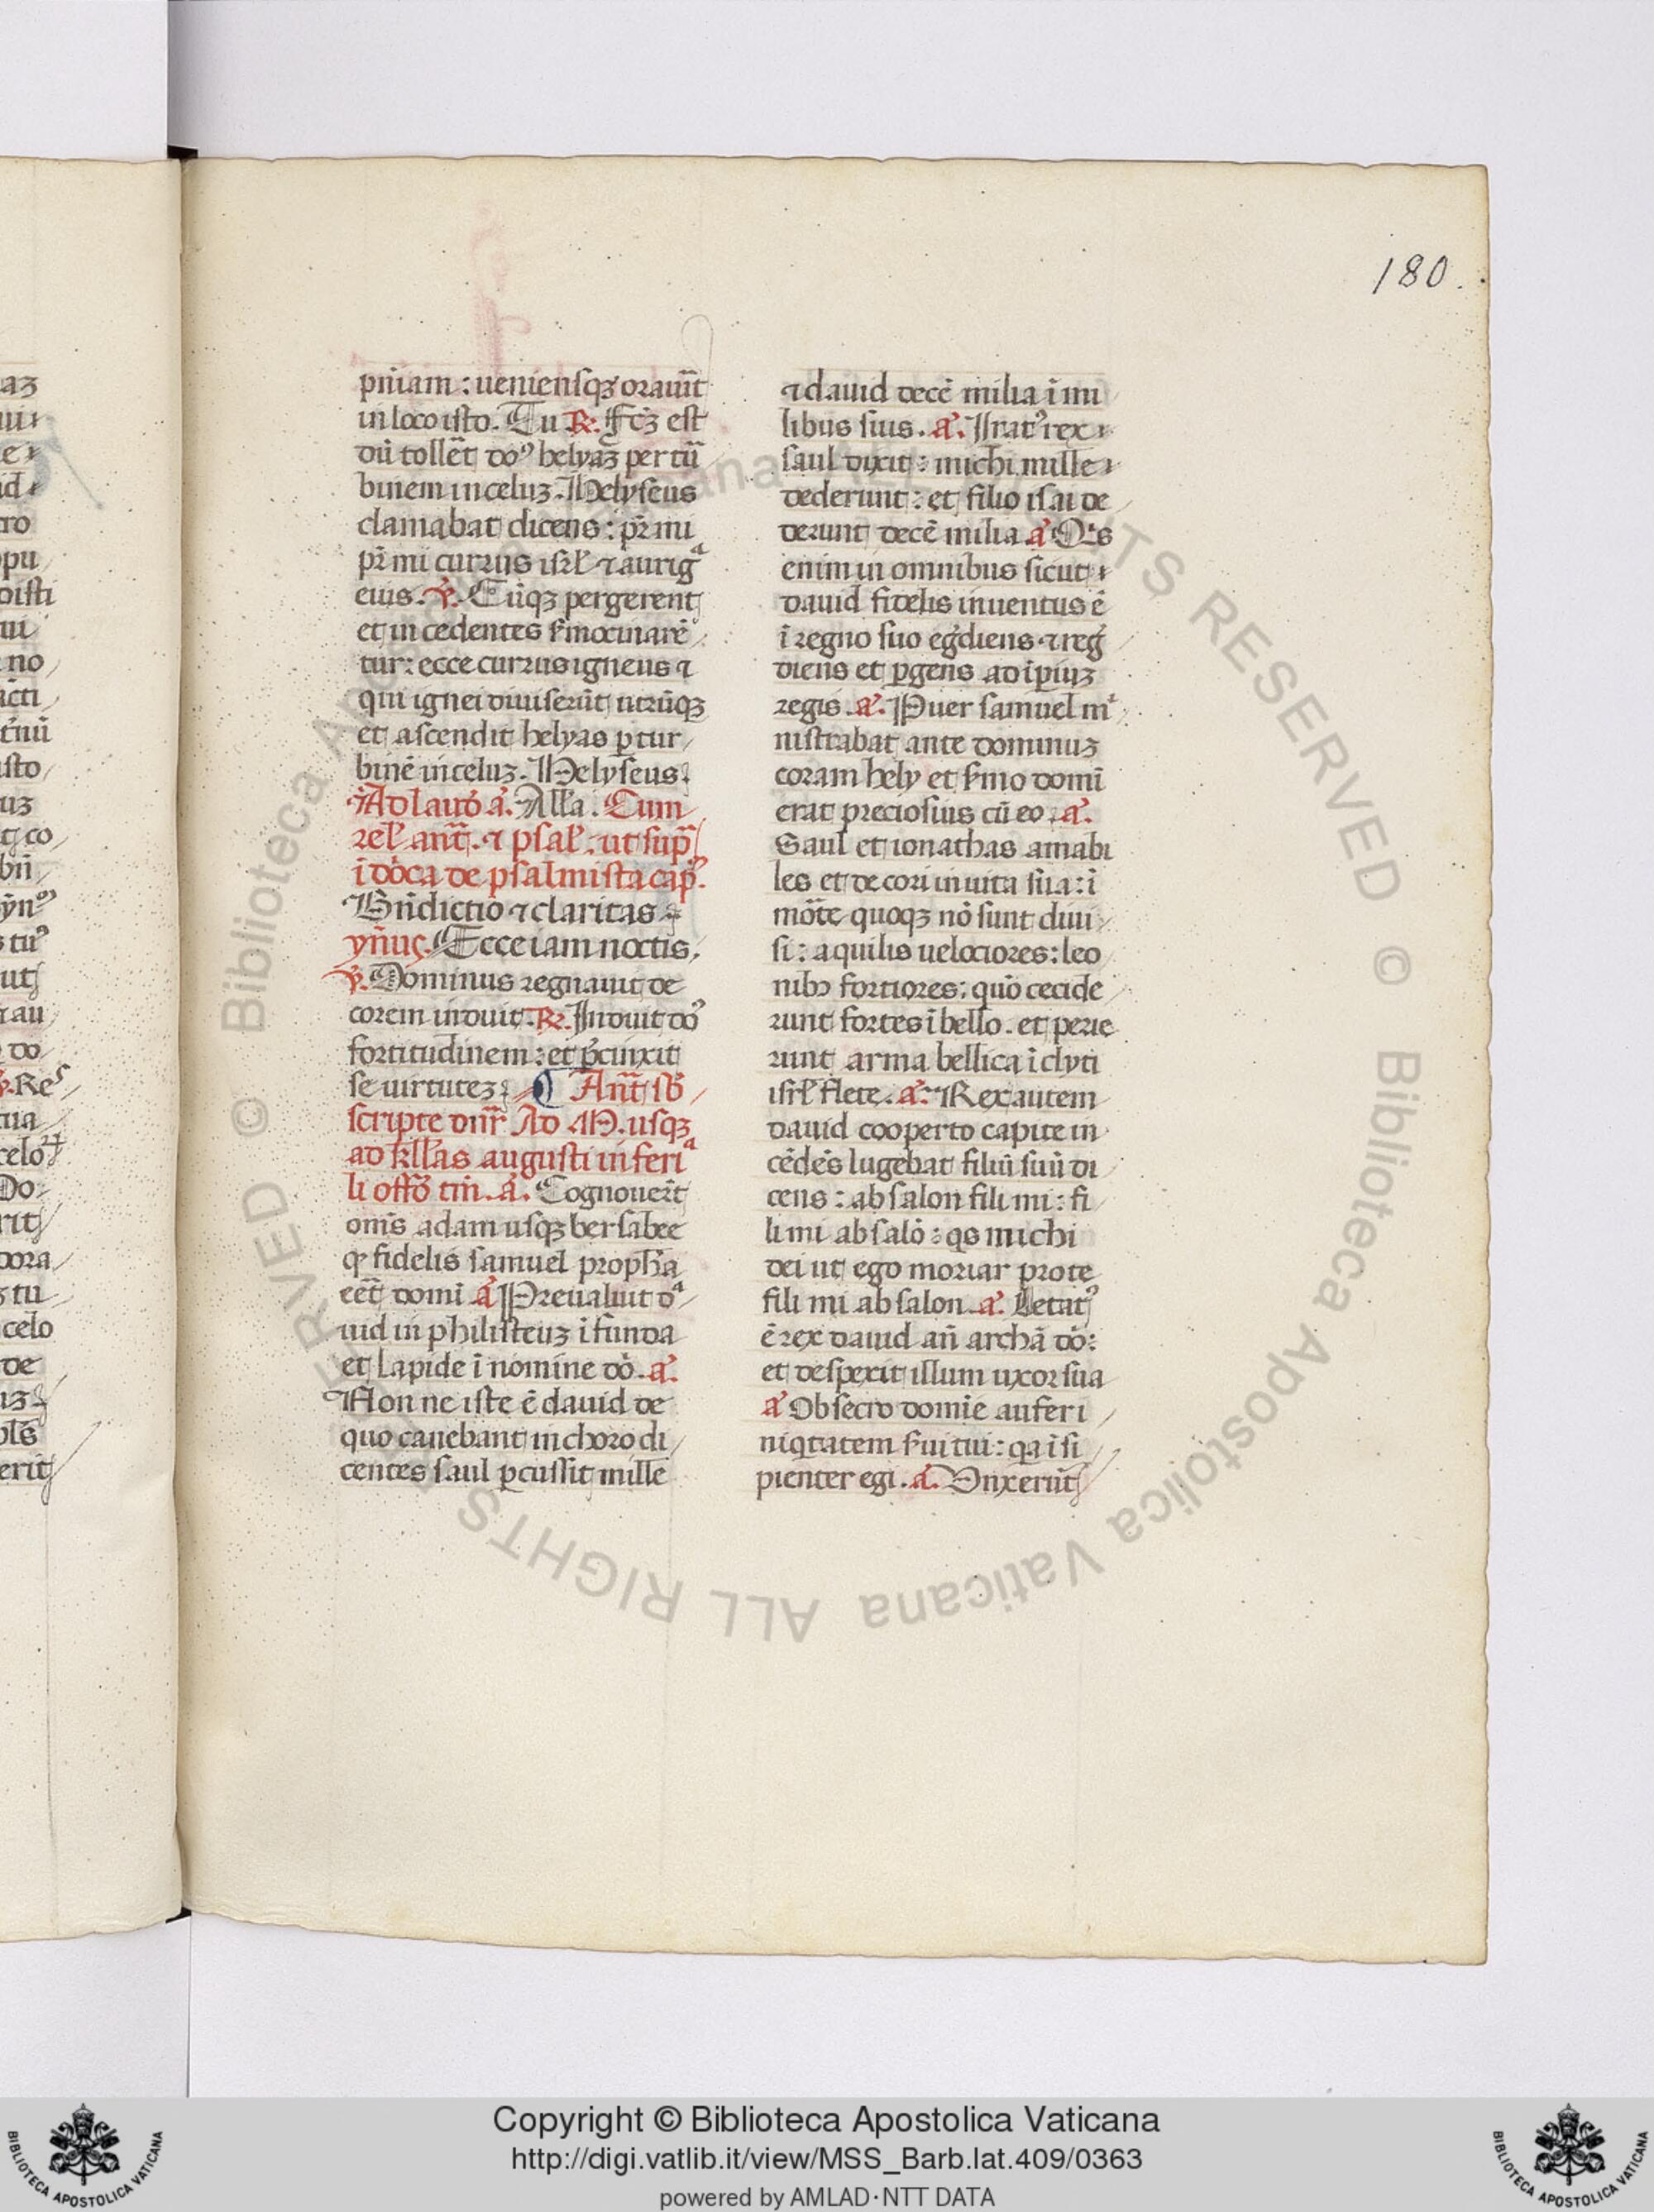 180.
pniam : ueniensqꝫ orauūt
in loco isto. Tu R. Fcꝫ est
dū tollēt do᷒ helyaꝫ per tū
binem in celuꝫ. Helyseus
clamabat dicens : pr̄ mi
pr̄ mi currus isrl̄ ⁊ aurigᵃ
eius. V. Cūqꝫ pergerent
et in cedentes s̄mocinarē
tur : ecce currus igneus ⁊
qui ignei diuiserūt utrūqꝫ
et ascendit helyas p̱ tur
binē in celuꝫ. Helyseus.
Ad laud᷒ a᷒. All̄a. Cum
rel᷒. ant̄. ⁊ psal᷒. ut sup̄
ī dōca de psalmista cap᷒.
Bn̄dictio ⁊ claritas
yn̄us. Ecce iam noctis.
V. Dominus regnauit de
corem induit. R. Induit do᷒
fortitudinem : et p̄cinxit
se uirtuteꝫ. Ant̄ sb᷒
scripte dn̄r Ad M. usqꝫ
ad kll̄as augusti in feriᵃ
li offō tm̄. a᷒. Cognouer̄t
om̄s adam usqꝫ bersabee
ꝙ fidelis samuel proph̄a
eēt domī a᷒ Preualuit dᵃ
uid in philisteuꝫ ī funda
et lapide ī nomine dō. a᷒.
Non ne iste ē dauid de
quo canebant in choro di
centes saul p̱cussit mille
⁊ dauid decē milia ī mi
libus suis. a᷒. Irat᷒ rex
saul dixit : michi mille
dederunt : et filio isai de
derunt decē milia a᷒ Q̄s
enim in omnibus sicut
dauid fidelis inuentus ē
ī regno suo eḡdiens ⁊ reḡ
diens et p̱gens ad īp̱iuꝫ
regis. a᷒. Puer samuel mⁱ
nistrabat ante dominuꝫ
coram hely et s̄mo domī
erat preciosius cū eo. a᷒.
Saul et ionathas amabi
les et decori in uita sua : ī
mōte quoqꝫ nō sunt diui
si : aquilis uelociores : leo
nibꝫ fortiores : quō cecide
runt fortes ī bello. et perie
runt arma bellica ī clyti
isrl̄ flete. a᷒. Rex autem
dauid cooperto capite in
cēdēs lugebat filiū suū di
cens : absalon fili mi : fi
li mi absalō : q̄s michi
det ut ego moriar pro te
fili mi absalon. a᷒. Letat᷒
ē rex dauid an̄ archā dō :
et despexit illum uxor sua
a᷒ Obsecro domīe aufer i
niq̱tatem s̄ui tui : qa īsi
pienter egi. a᷒. Unxerūt
Copyright © Biblioteca Apostolica Vaticana
http://digi.vatlib.it/view/MSS_Barb.lat.409/0363
powered by AMLAD·NTT DATA